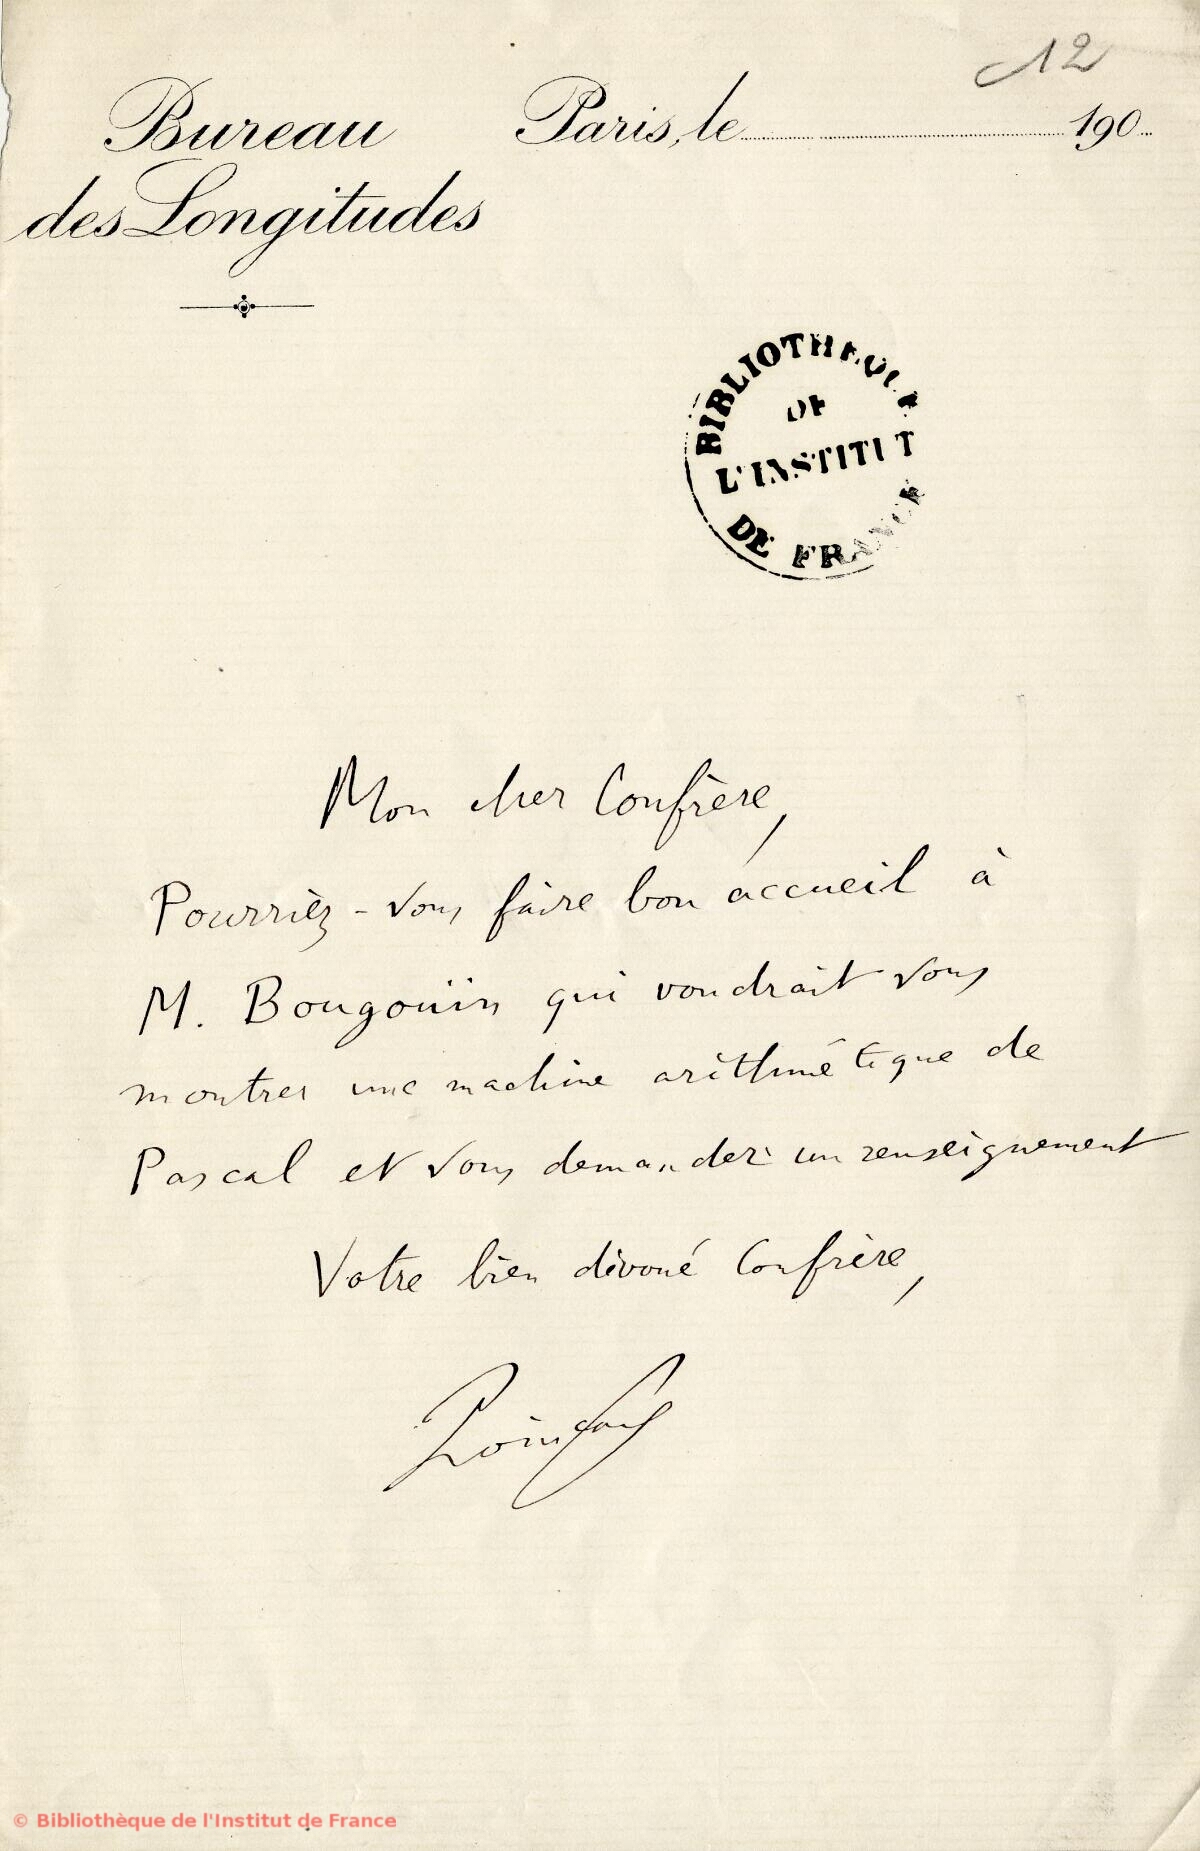 12
Bureau
des Longitudes
Paris, le 190
BIBLIOTHEQUE
DE
L'INSTITUT
DE FRANCE
Mon cher Confrère,
Pourriez-vous faire bon accueil à
M. Bougouin qui voudrait vous
montrer une machine arithmétique de
Pascal et vous demander un renseignement
Votre bien dévoué Confrère,
Poincaré
© Bibliothèque de l'Institut de France